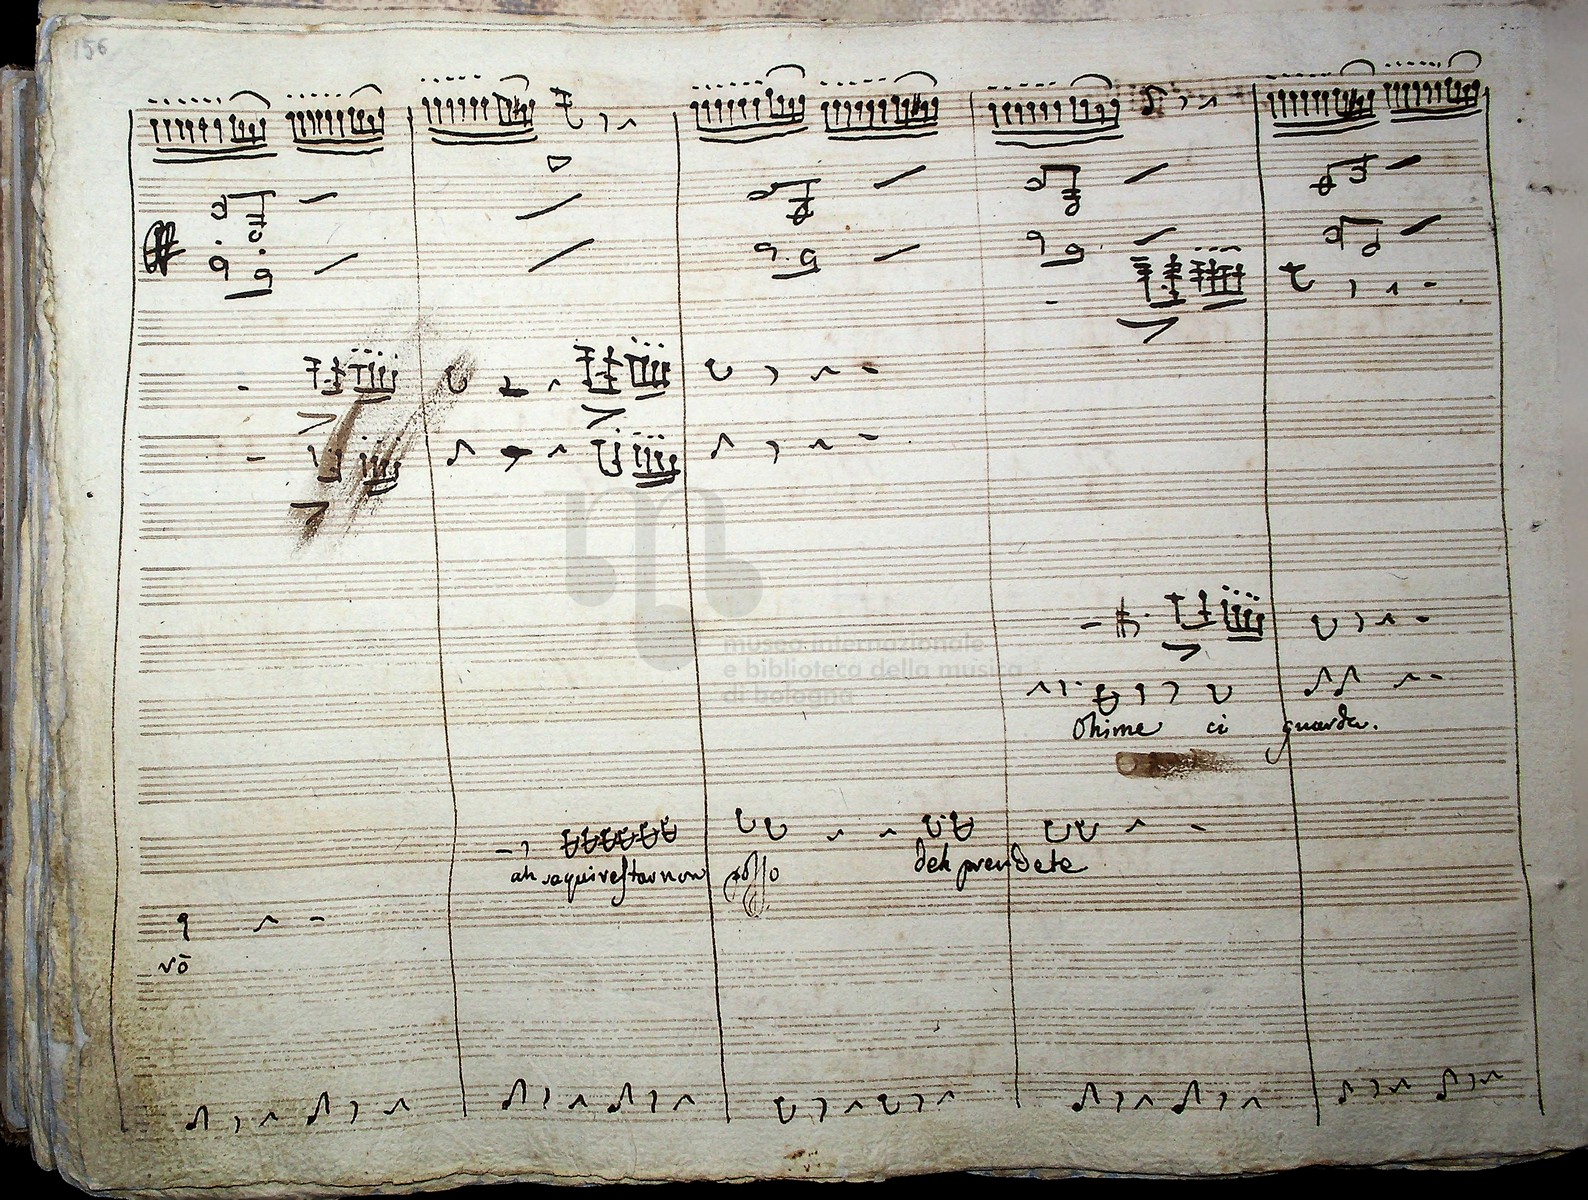 156
museo internazionale
e biblioteca della musica
di bologna
Ohime ci guarda.
ah se qui restar non posso
deh prendete
vò